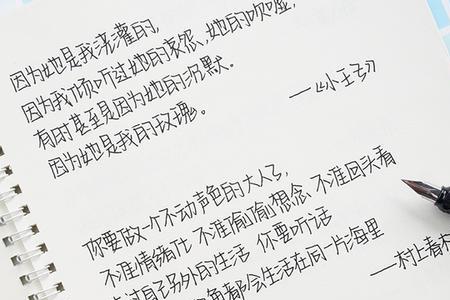 因为她是我浇灌的,
因为我倾听过她的哀怨,她的吹嘘,
有时甚至是因为她的沉默。
因为她是我的玫瑰。
——《小王子》
你要做一个不动声色的大人了,
不准情绪化 不准偷偷想念 不准回头看
过自己另外的生活 你要听话
都会生活在同一片海里
——村上春